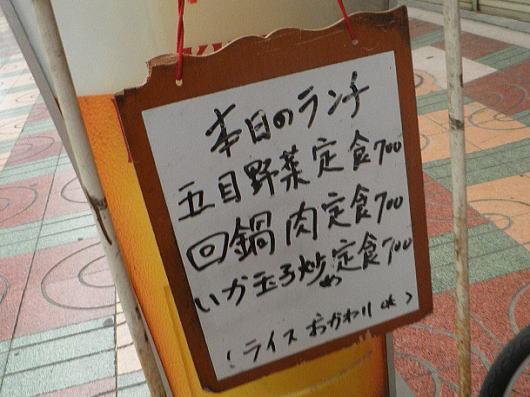 本日のランチ
五目野菜定食700
回鍋肉定食700
いか玉子炒め定食700
(ライスおかわりok)